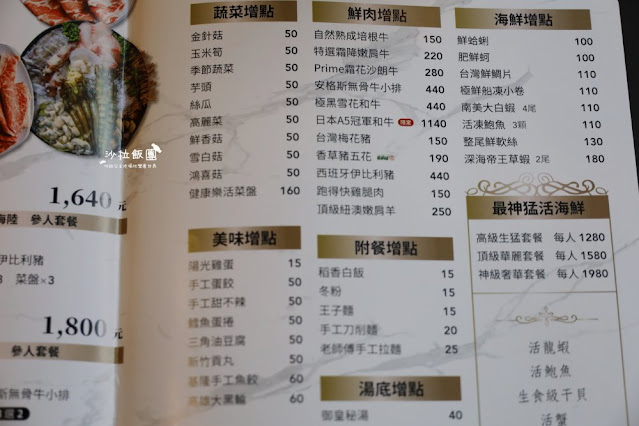 沙拉飯團
1,640 元
海陸 參人套餐
伊比利豬
8 菜盤×3
1,800 元
參人套餐
斯無骨牛小排
蔬菜增點
金針菇 50
玉米筍 50
季節蔬菜 50
芋頭 50
絲瓜 50
高麗菜 50
鮮香菇 50
雪白菇 50
鴻喜菇 50
健康樂活菜盤 160
美味增點
陽光雞蛋 15
手工蛋餃 50
手工甜不辣 50
鱈魚蛋捲 50
三角油豆腐 50
新竹貢丸 50
基隆手工魚餃 60
高雄大黑輪 60
鮮肉增點
自然熟成培根牛 150
特選霜降嫩肩牛 220
Prime霜花沙朗牛 280
安格斯無骨牛小排 440
極黑雪花和牛 440
日本A5冠軍和牛 限量 1140
台灣梅花豬 150
香草豬五花 190
西班牙伊比利豬 440
跑得快雞腿肉 150
頂級紐澳嫩肩羊 250
附餐增點
稻香白飯 15
冬粉 15
王子麵 15
手工刀削麵 20
老師傅手工拉麵 25
湯底增點
御皇秘湯 40
海鮮增點
鮮蛤蜊 100
肥鮮蚵 100
台灣鮮鯛片 110
極鮮船凍小卷 110
南美大白蝦 4尾 110
活凍鮑魚 3顆 110
整尾鮮軟絲 130
深海帝王草蝦 2尾 180
最神猛活海鮮
高級生猛套餐 每人 1280
頂級華麗套餐 每人 1580
神級奢華套餐 每人 1980
活龍蝦
活鮑魚
生食級干貝
活蟹